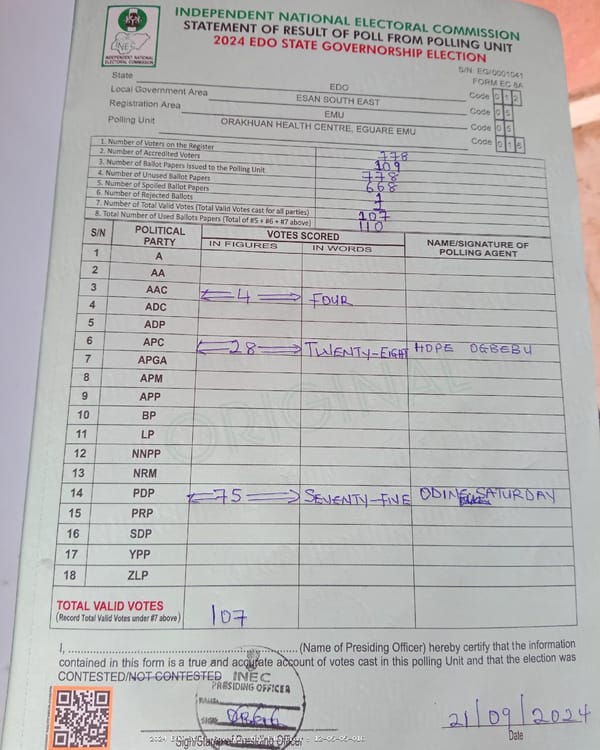 INDEPENDENT NATIONAL ELECTORAL COMMISSION
STATEMENT OF RESULT OF POLL FROM POLLING UNIT
2024 EDO STATE GOVERNORSHIP ELECTION
INEC
INDEPENDENT NATIONAL
ELECTORAL COMMISSION
S/N EG/0001041
FORM EC 8A
State EDO Code 0 1 2
Local Government Area ESAN SOUTH EAST Code 0 5
Registration Area EMU Code 0 5
Polling Unit ORAKHUAN HEALTH CENTRE, EGUARE EMU Code 0 1 6
1. Number of Voters on the Register 778
2. Number of Accredited Voters 109
3. Number of Ballot Papers Issued to the Polling Unit 778
4. Number of Unused Ballot Papers 668
5. Number of Spoiled Ballot Papers 1
6. Number of Rejected Ballots
7. Number of Total Valid Votes (Total Valid Votes cast for all parties) 107
8. Total Number of Used Ballots Papers (Total of #5 + #6 + #7 above) 110
S/N POLITICAL PARTY VOTES SCORED NAME/SIGNATURE OF POLLING AGENT
IN FIGURES IN WORDS
1 A
2 AA
3 AAC 4 FOUR
4 ADC
5 ADP
6 APC 28 TWENTY-EIGHT HOPE OGBEBU
7 APGA
8 APM
9 APP
10 BP
11 LP
12 NNPP
13 NRM
14 PDP 75 SEVENTY-FIVE SATURDAY
15 PRP
16 SDP
17 YPP
18 ZLP
ORIGINAL
TOTAL VALID VOTES
(Record Total Valid Votes under #7 above) 107
I, ........................................ (Name of Presiding Officer) hereby certify that the information
contained in this form is a true and accurate account of votes cast in this polling Unit and that the election was
CONTESTED/NOT CONTESTED
INEC
PRESIDING OFFICER
NAME
SIGN
21/09/2024
Sign/Stamp of Presiding Officer Date